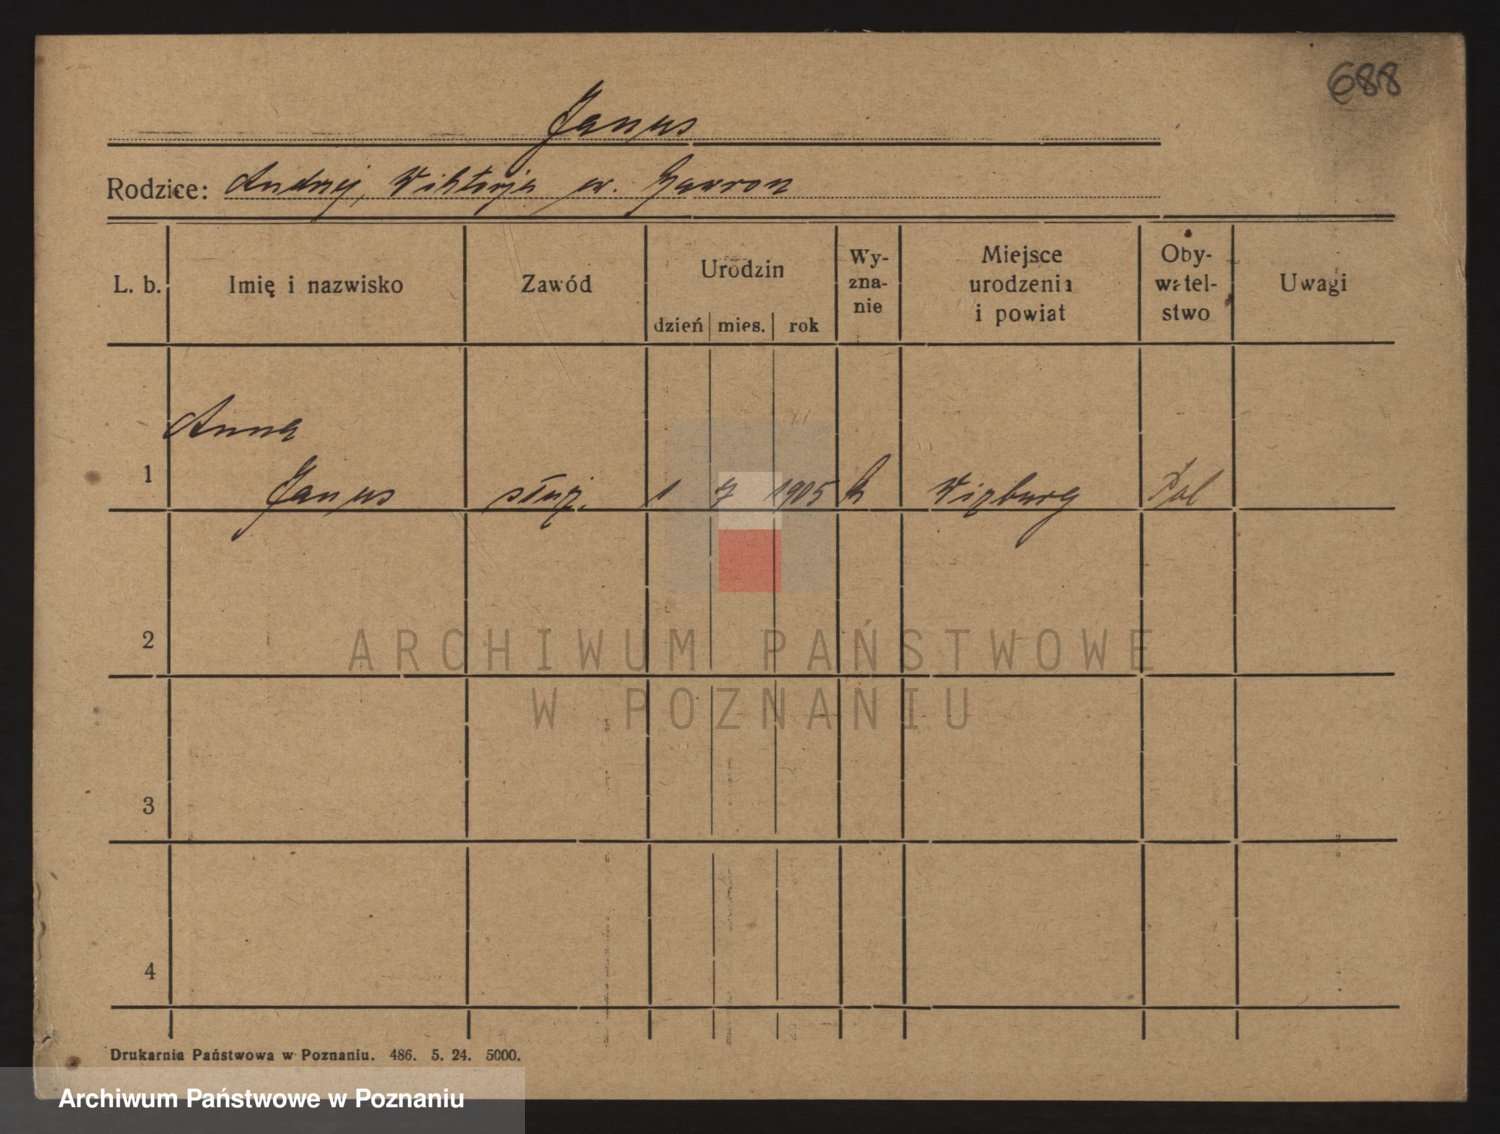 688
Janus
Rodzice: Andrzej, Wiktorja ur. Gawron
L. b. Imię i nazwisko Zawód Urodzin Wy-zna-nie Miejsce urodzenia i powiat Oby-watel-stwo Uwagi
dzień mies. rok
Anna
1 Janus służ. 1 7 1905 Pol
2
3
4
ARCHIWUM PAŃSTWOWE
W POZNANIU
Drukarnia Państwowa w Poznaniu. 486. 5. 24. 5000.
Archiwum Państwowe w Poznaniu